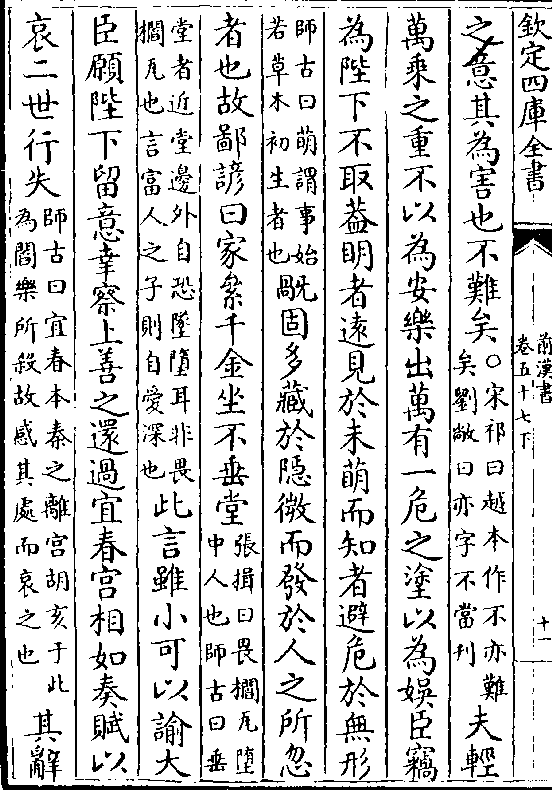 欽定四庫全書
前漢書
卷五十七下
十一
之意其為害也不難矣○宋祁曰越本作不亦難
矣劉敞曰亦字不當刋夫輕
萬乘之重不以為安樂出萬有一危之塗以為娛臣竊
為陛下不取葢明者遠見於未萌而知者避危於無形
師古曰萌謂事始
若草木初生者也旤固多藏於隱微而發於人之所忽
者也故鄙諺曰家絫千金坐不垂堂張揖曰畏櫩瓦墮
中人也師古曰垂
堂者近堂邊外自恐墜墮耳非畏
櫩瓦也言富人之子則自愛深也此言雖小可以諭大
臣願陛下留意幸察上善之還過宜春宫相如奏賦以
哀二世行失師古曰宜春本秦之離宫胡亥于此
為閻樂所殺故感其處而哀之也其辭